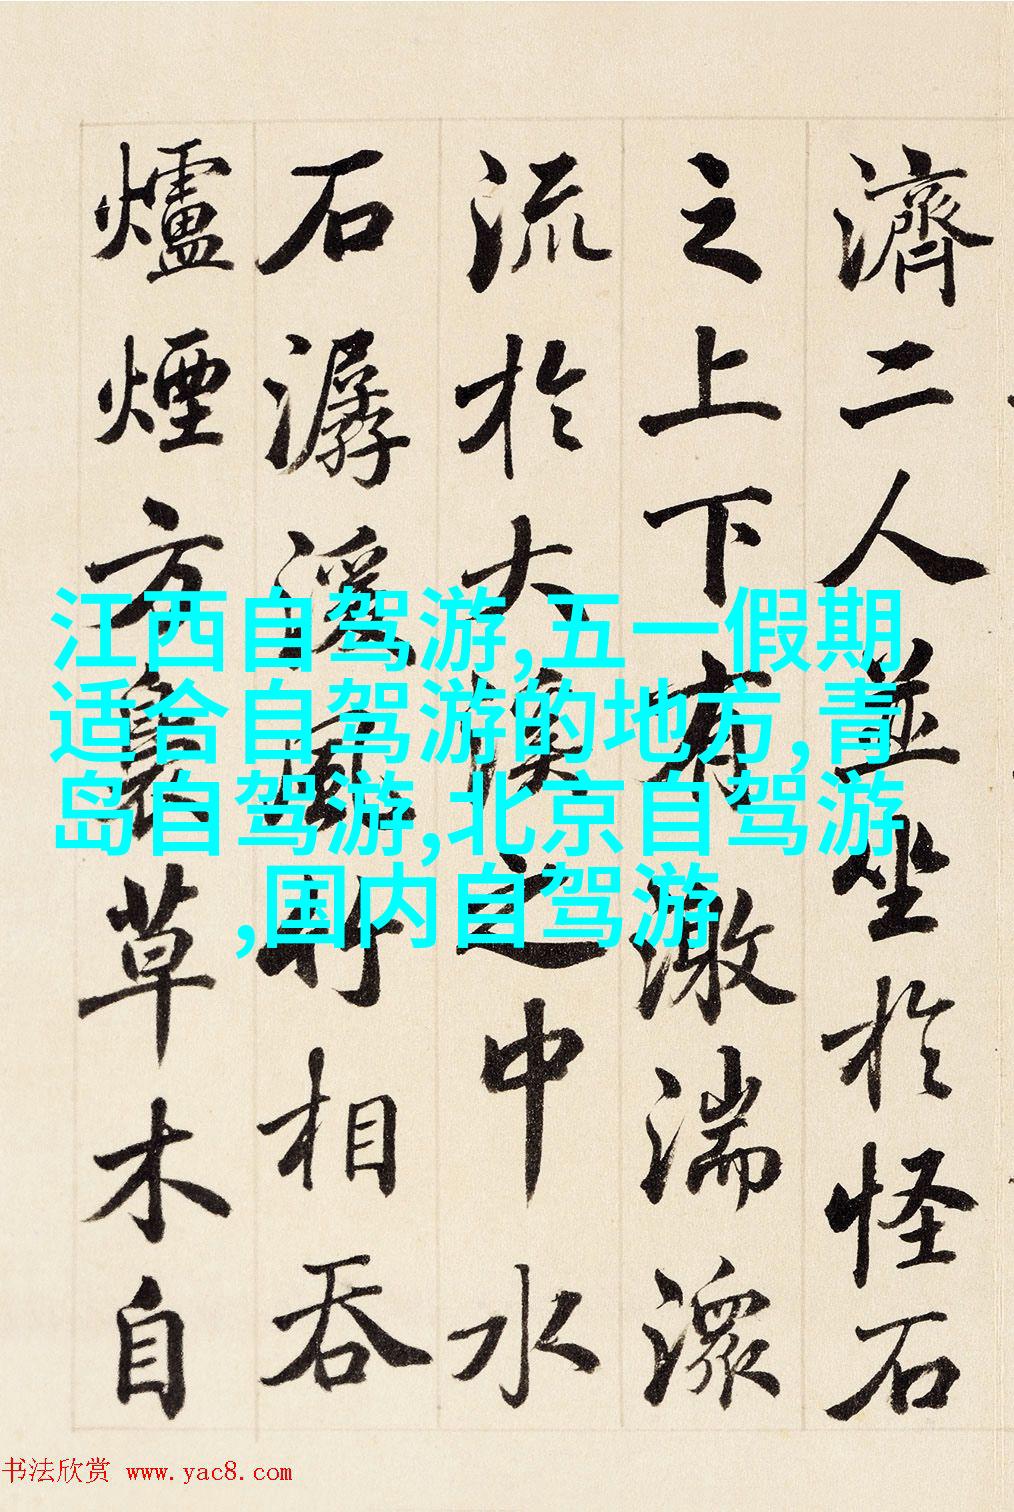 濟二人並坐於怪石
之上下有激湍潀
流於大之中水
石潺湲風竹相吞
爐煙方裊草木自
江西自驾游,五一假期
适合自驾游的地方,青
岛自驾游,北京自驾游
,国内自驾游
书法欣赏 www.yac8.com